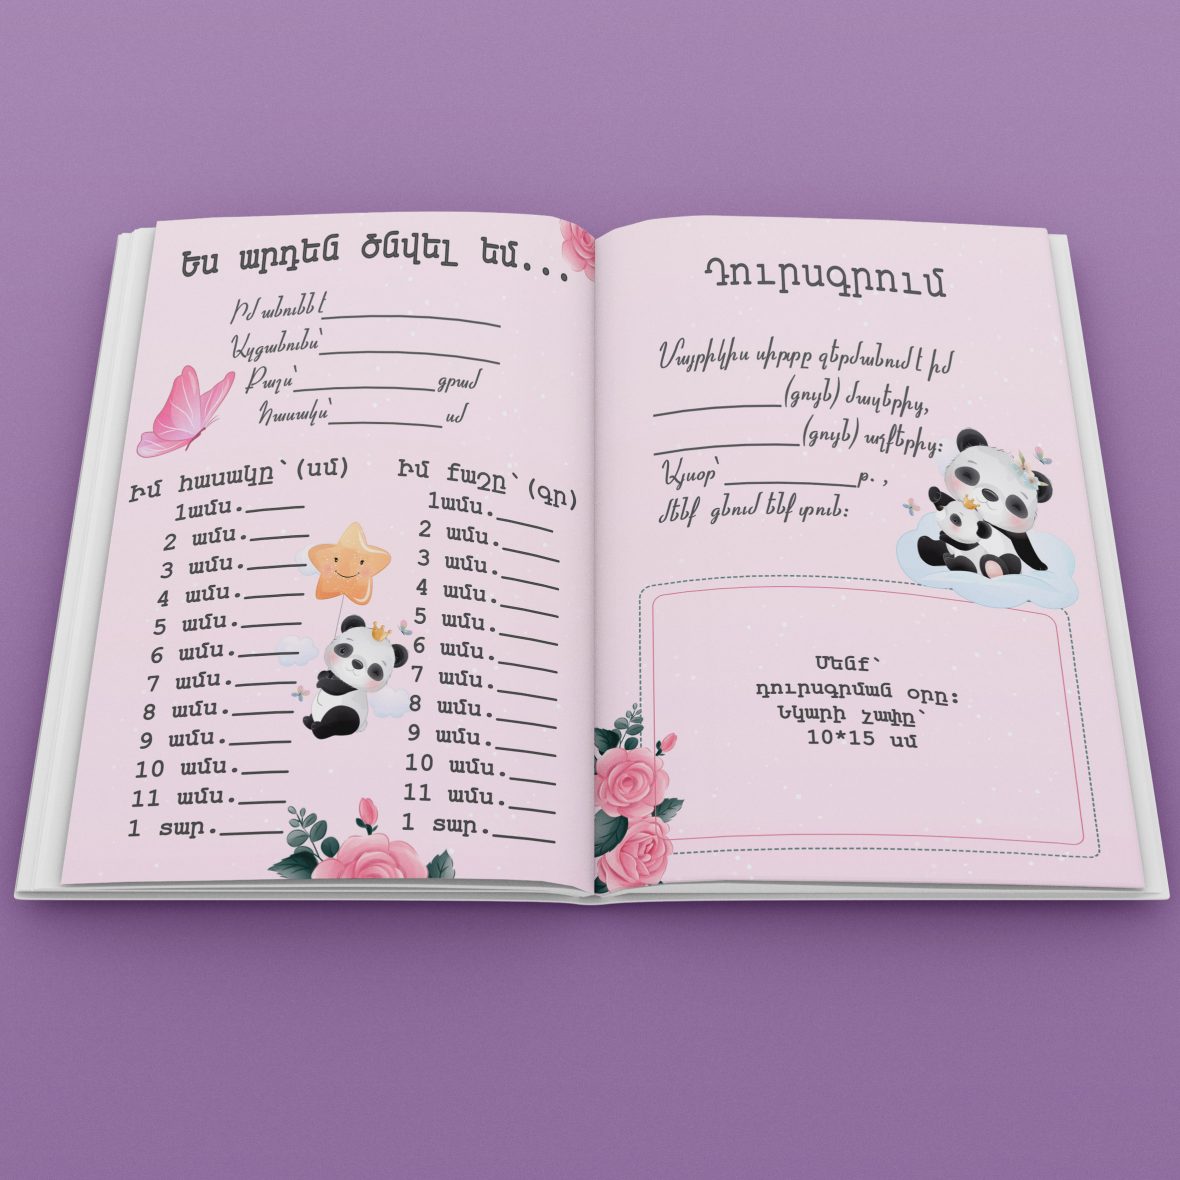 Ես արդեն ծնվել եմ...
Իմ անունն է
Ազգանունս՝
Քաշս՝ գրամ
Հասակս՝ սմ
Իմ հասակը՝(սմ)
1ամս.
2 ամս.
3 ամս.
4 ամս.
5 ամս.
6 ամս.
7 ամս.
8 ամս.
9 ամս.
10 ամս.
11 ամս.
1 տար.
Իմ քաշը՝(գր)
1ամս.
2 ամս.
3 ամս.
4 ամս.
5 ամս.
6 ամս.
7 ամս.
8 ամս.
9 ամս.
10 ամս.
11 ամս.
1 տար.
Դուրսգրում
Մայրիկիս սիրտը ջերմանում է իմ
(գույն) մազերից,
(գույն) աչքերից:
Այսօր՝ թ. ,
մենք գնում ենք տուն:
Մենք՝
դուրսգրման օրը:
Նկարի չափը՝
10*15 սմ